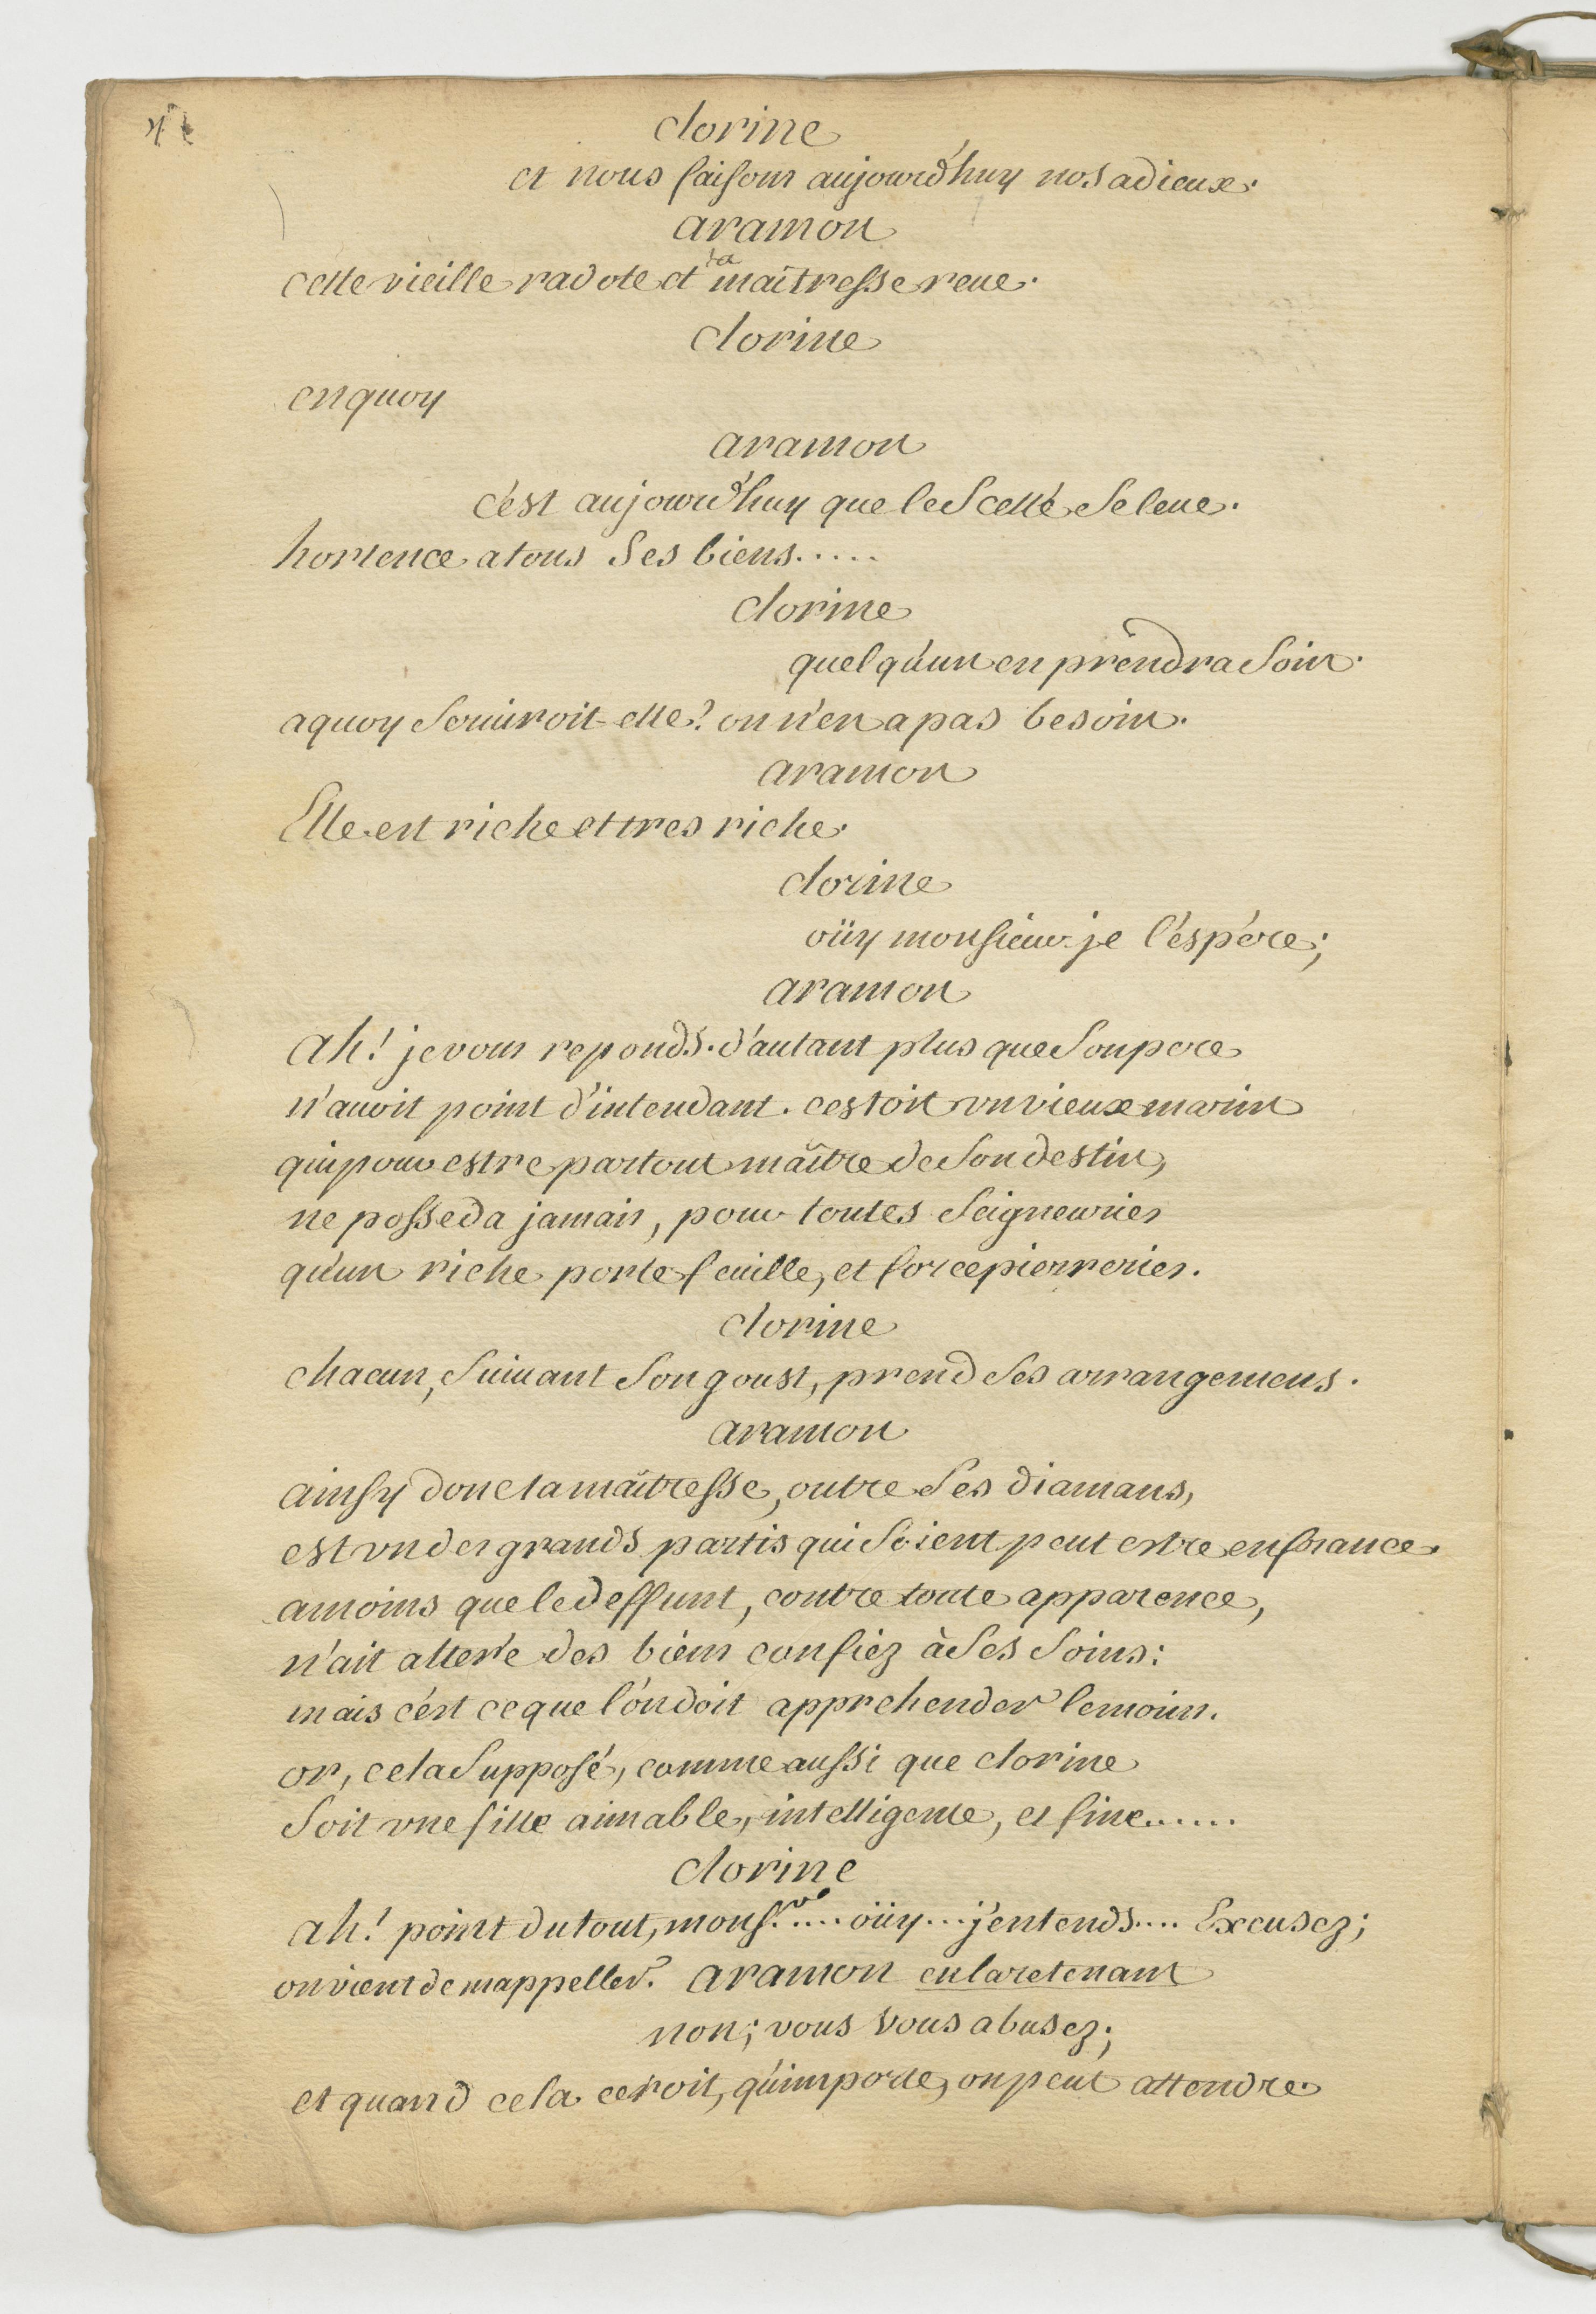 clorine
et nous faisons aujourd'huy nos adieux.
aramon
cette vieille radote et ta maîtresse reue.
clorine
en quoy
aramon
c'est aujourd'huy que le Scellé Se leue.
hortence a tous Ses biens.....
clorine
quelqu'un en prendra Soin.
a quoy Seruiroit-elle? on n'en a pas besoin.
aramon
Elle est riche et tres riche.
clorine
oüy monsieur je l'éspére;
aramon
ah! je vous reponds. d'autant plus que Son pere
n'auoit point d'intendant. cestoit vn vieux marin
qui pour estre partout maître de Son destin,
ne posseda jamais, pour toutes Seigneuries
qu'un riche porte feuille, et force pierreries.
clorine
chacun, Suiuant Son goust, prend Ses arrangemens.
aramon
ainsy donc ta maîtresse, outre Ses diamans,
est vn des grands partis qui Soient peut estre en france.
a moins que le deffunt, contre toute apparence,
n'ait alteré des biens confiez à Ses Soins:
mais c'est ce que l'on doit apprehender le moins.
or, cela Supposé, comme aussi que clorine
Soit vne fille aimable, intelligente, et fine......
clorine
ah! point du tout, mons.r .... oüy... j'entends.... Excusez;
on vient de mappeller. aramon en la retenant
non; vous vous abusez;
et quand cela ceroit, qu'importe, on peut attendre